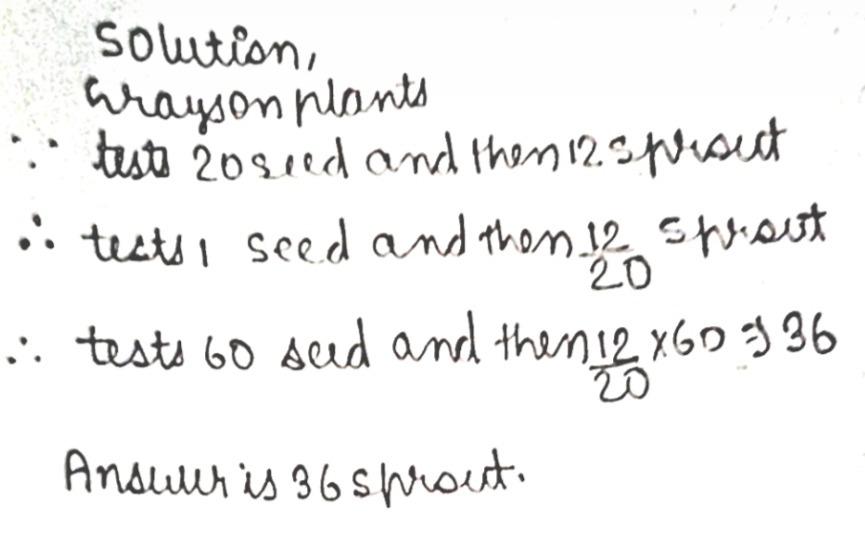 Solution,
Grayson plants
∵ tests 20 seed and then 12 sprout
∴ tests 1 seed and then 12/20 sprout
∴ tests 60 seed and then 12/20 × 60 ⇒ 36
Answer is 36 sprout.